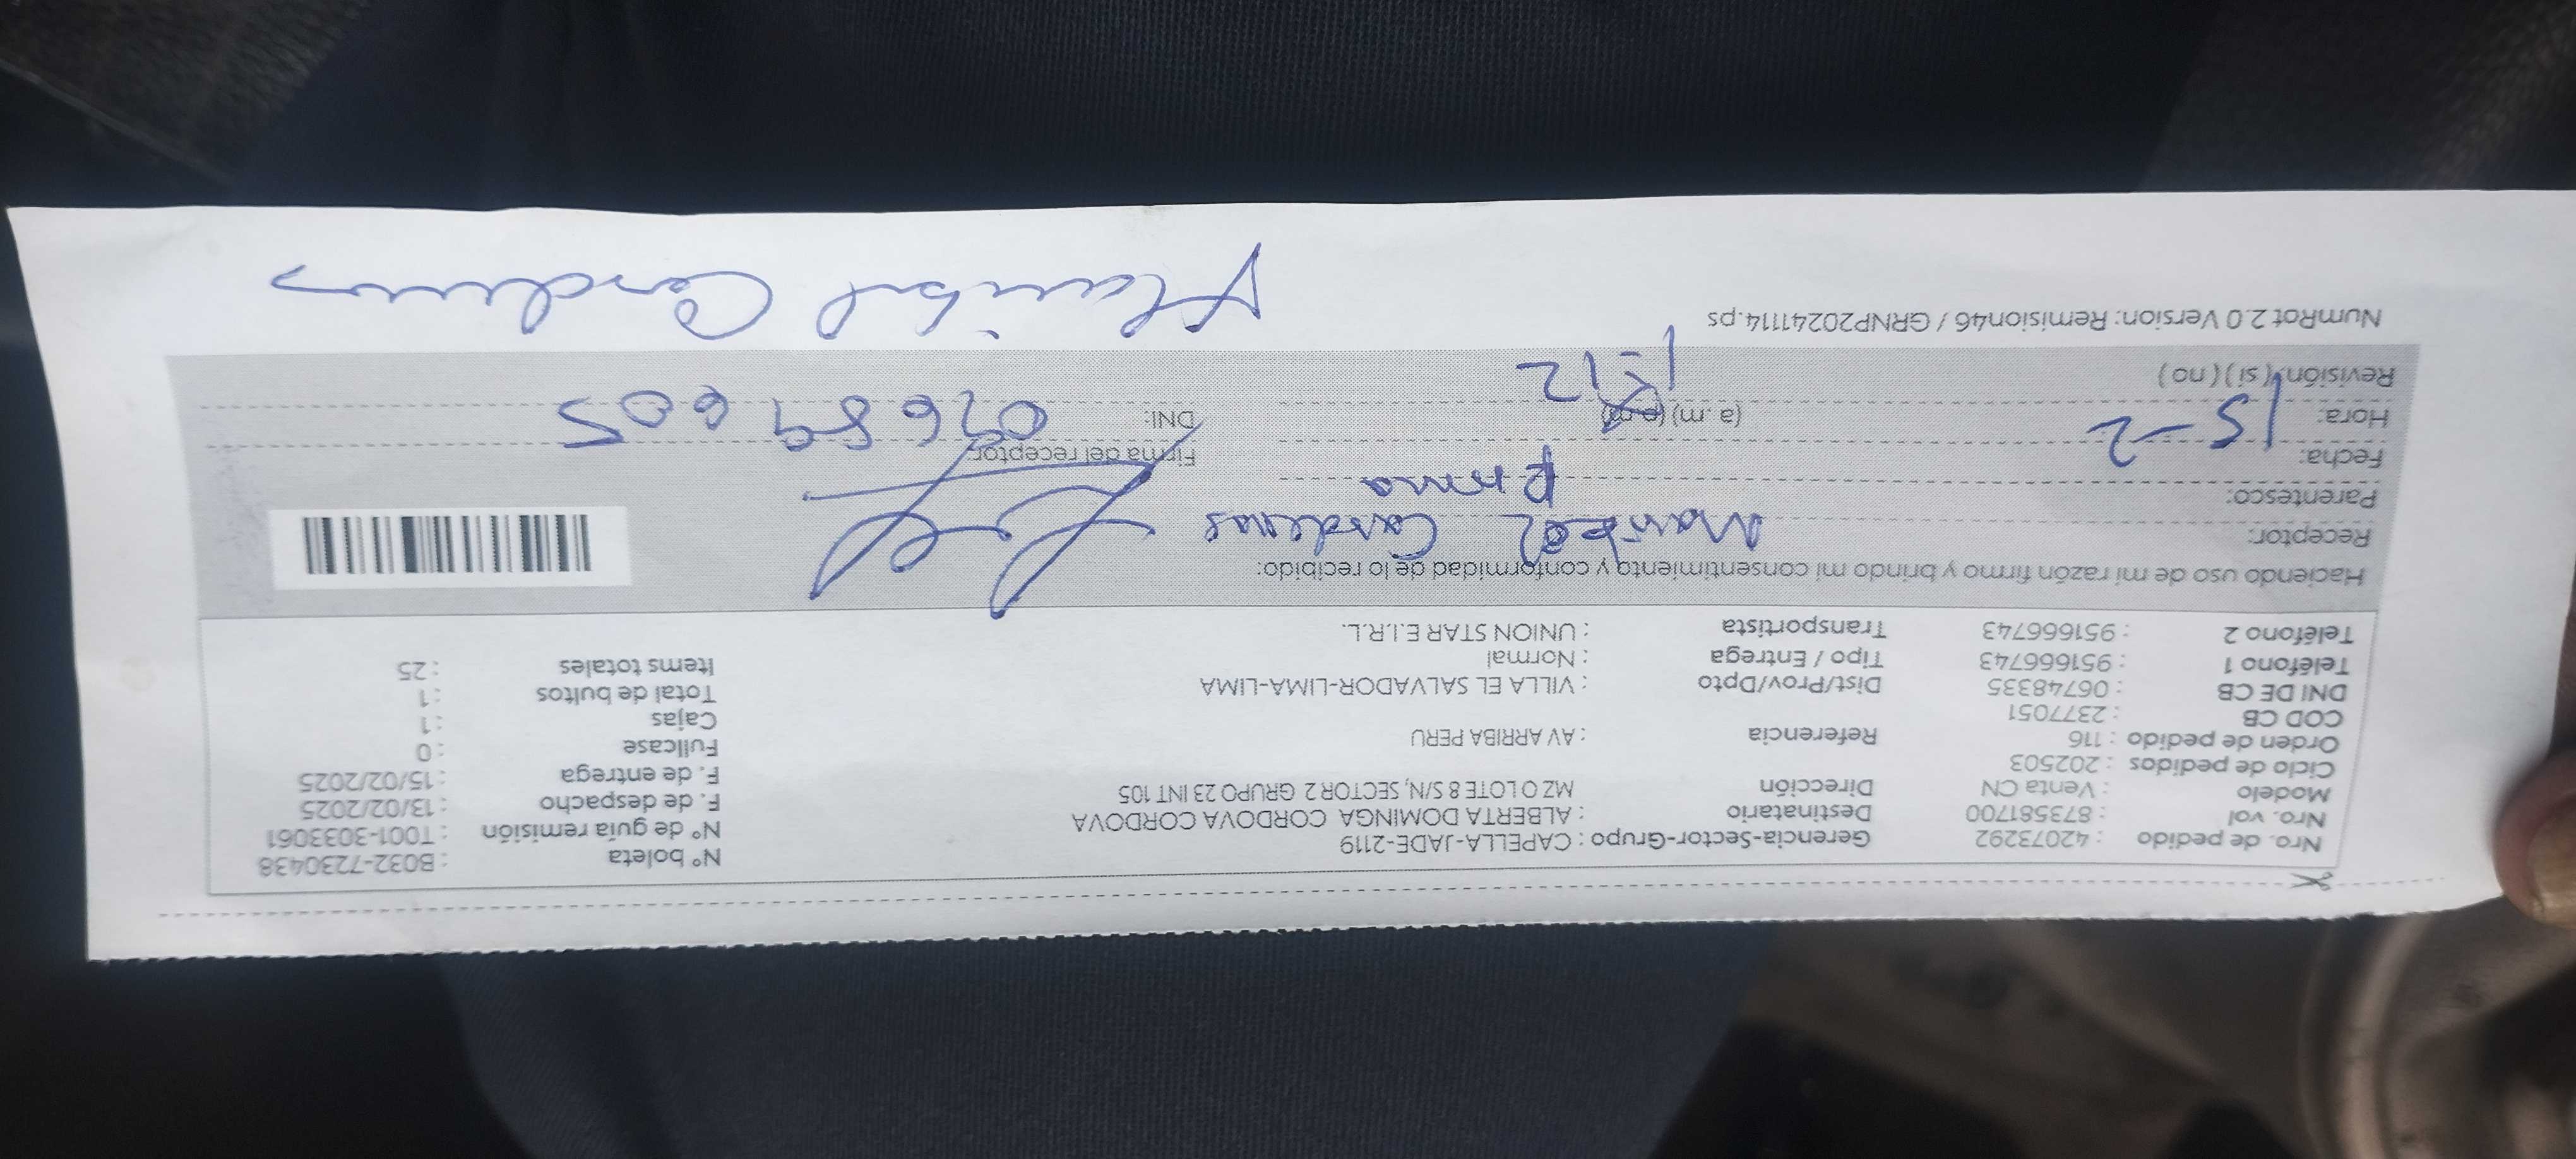 Nro. de pedido : 42073292 Gerencia-Sector-Grupo : CAPELLA-JADE-2119 N° boleta : B032-7230438
Nro. vol : 873581700 Destinatario : ALBERTA DOMINGA CORDOVA CORDOVA N° de guía remisión : T001-3033061
Modelo : Venta CN Dirección MZ O LOTE 8 S/N, SECTOR 2 GRUPO 23 INT 105 F. de despacho : 13/02/2025
Ciclo de pedidos : 202503 F. de entrega : 15/02/2025
Orden de pedido : 116 Referencia : AV ARRIBA PERU Fullcase : 0
COD CB : 2377051 Cajas : 1
DNI DE CB : 06748335 Dist/Prov/Dpto : VILLA EL SALVADOR-LIMA-LIMA Total de bultos : 1
Teléfono 1 : 951666743 Tipo / Entrega : Normal Items totales : 25
Teléfono 2 : 951666743 Transportista : UNION STAR E.I.R.L.
Haciendo uso de mi razón firmo y brindo mi consentimiento y conformidad de lo recibido:
Receptor: Maribel Cardenas
Parentesco:
Fecha: 15-2 Firma del receptor:
Hora: (a. m) (p.m) DNI: 09689605
Revisión: (si) (no) 1-12
NumRot 2.0 Version: Remision46 / GRNP20241114.ps
Maribel Cardenas